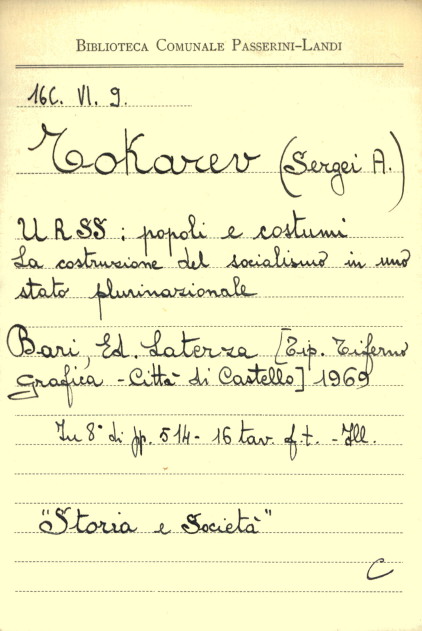 BIBLIOTECA COMUNALE PASSERINI-LANDI
16C. VI. 9.
Tokarev (Sergei A.)
URSS : popoli e costumi
La costruzione del socialismo in uno
stato plurinazionale
Bari, Ed. Laterza [Tip. Tiferno
grafica - Città di Castello] 1969
In 8° di pp. 514 - 16 tav. f.t. - Ill.
"Storia e Società"
C